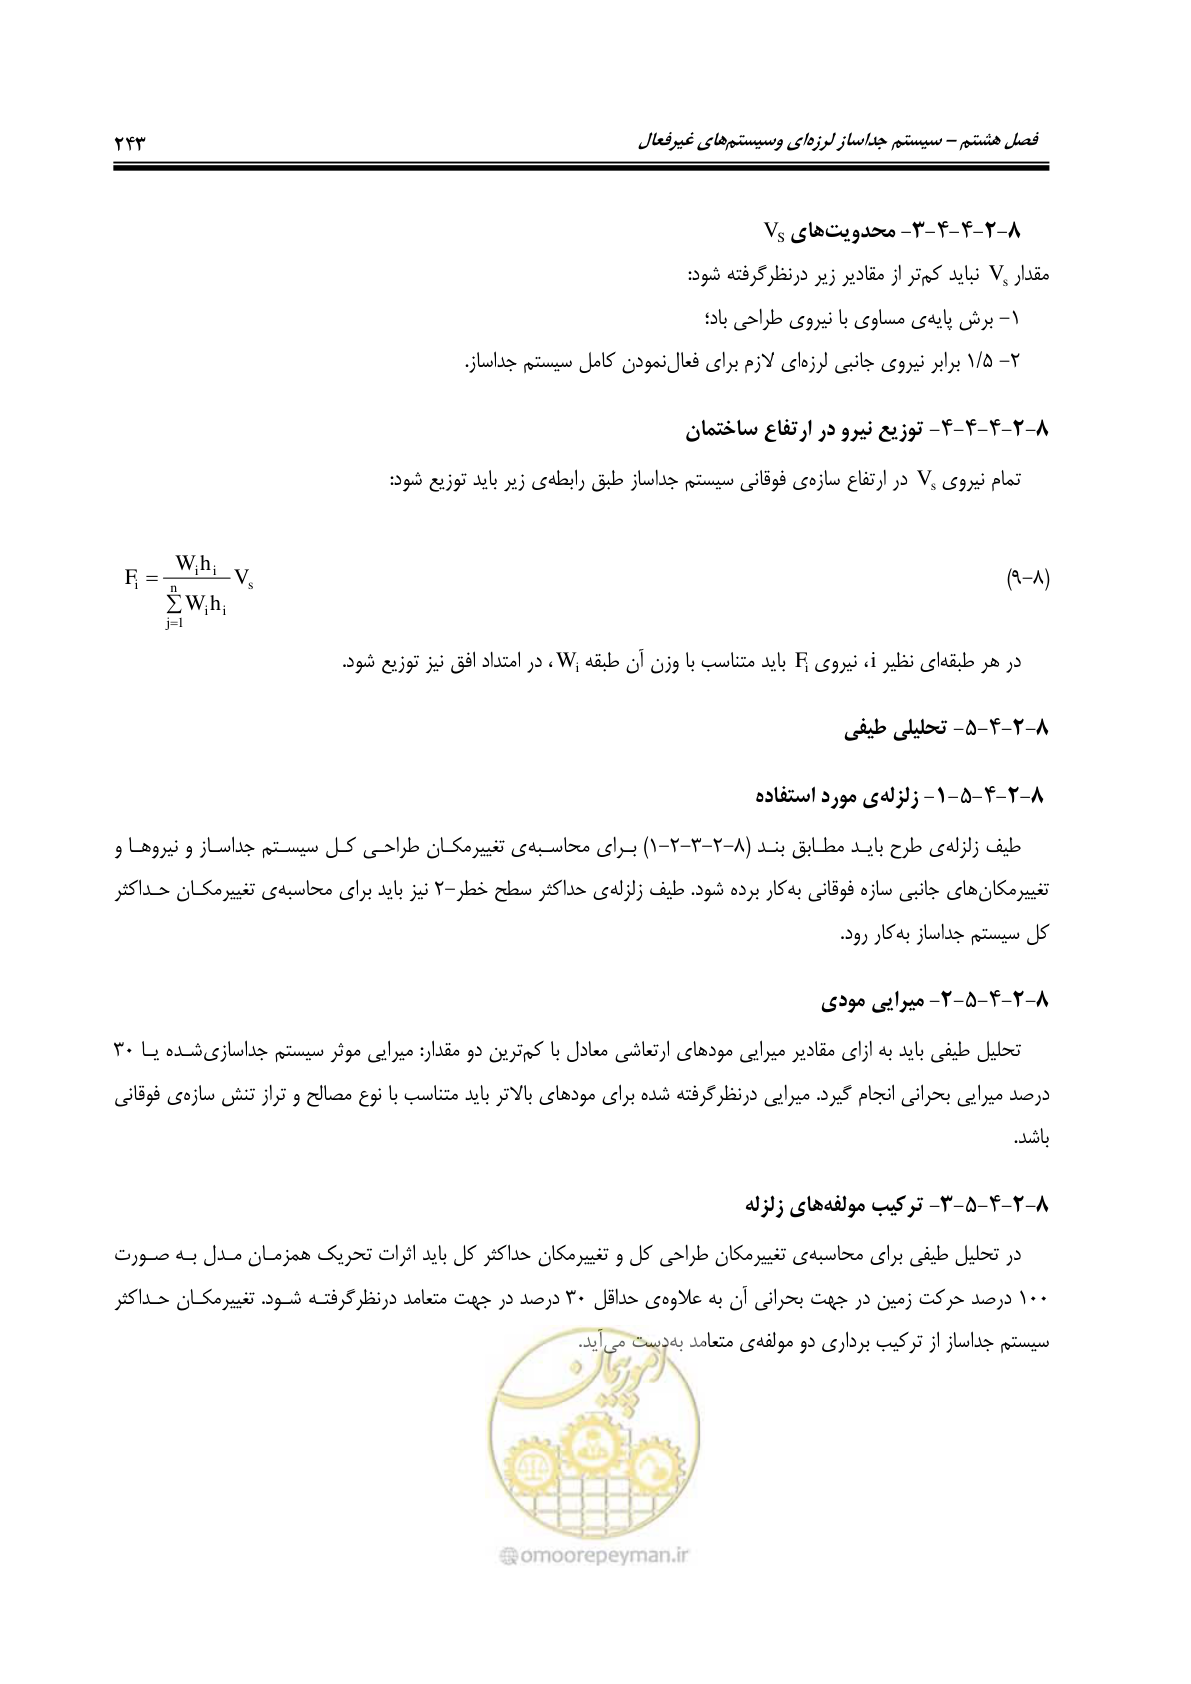 فصل هشتم – سیستم جداساز لرزه‌ای وسیستم‌های غیرفعال ۲۴۳
۸-۲-۴-۴-۳- محدویت‌های VS
مقدار Vs نباید کم‌تر از مقادیر زیر درنظرگرفته شود:
۱- برش پایه‌ی مساوی با نیروی طراحی باد؛
۲- ۱/۵ برابر نیروی جانبی لرزه‌ای لازم برای فعال‌نمودن کامل سیستم جداساز.
۸-۲-۴-۴-۴- توزیع نیرو در ارتفاع ساختمان
تمام نیروی Vs در ارتفاع سازه‌ی فوقانی سیستم جداساز طبق رابطه‌ی زیر باید توزیع شود:
(۸-۹) Fi = Wihi / Σ(j=1..n) Wihi Vs
در هر طبقه‌ای نظیر i، نیروی Fi باید متناسب با وزن آن طبقه Wi، در امتداد افق نیز توزیع شود.
۸-۲-۴-۵- تحلیلی طیفی
۸-۲-۴-۵-۱- زلزله‌ی مورد استفاده
طیف زلزله‌ی طرح باید مطابق بند (۸-۲-۳-۲-۱) برای محاسبه‌ی تغییرمکان طراحی کل سیستم جداساز و نیروها و
تغییرمکان‌های جانبی سازه فوقانی به‌کار برده شود. طیف زلزله‌ی حداکثر سطح خطر-۲ نیز باید برای محاسبه‌ی تغییرمکان حداکثر
کل سیستم جداساز به‌کار رود.
۸-۲-۴-۵-۲- میرایی مودی
تحلیل طیفی باید به ازای مقادیر میرایی مودهای ارتعاشی معادل با کم‌ترین دو مقدار: میرایی موثر سیستم جداسازی‌شده یا ۳۰
درصد میرایی بحرانی انجام گیرد. میرایی درنظرگرفته شده برای مودهای بالاتر باید متناسب با نوع مصالح و تراز تنش سازه‌ی فوقانی
باشد.
۸-۲-۴-۵-۳- ترکیب مولفه‌های زلزله
در تحلیل طیفی برای محاسبه‌ی تغییرمکان طراحی کل و تغییرمکان حداکثر کل باید اثرات تحریک همزمان مدل به صورت
۱۰۰ درصد حرکت زمین در جهت بحرانی آن به علاوه‌ی حداقل ۳۰ درصد در جهت متعامد درنظرگرفته شود. تغییرمکان حداکثر
سیستم جداساز از ترکیب برداری دو مولفه‌ی متعامد به‌دست می‌آید.
امور پیمان
@omoorepeyman.ir